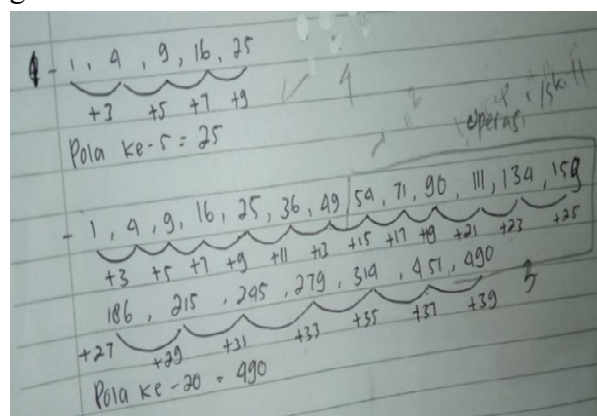 1 - 1, 4, 9, 16, 25
+3 +5 +7 +9
4
Pola ke-5 = 25
operasi
- 1, 4, 9, 16, 25, 36, 49, 54, 71, 90, 111, 134, 159
+3 +5 +7 +9 +11 +13 +15 +17 +19 +21 +23 +25
186, 215, 245, 279, 314, 451, 490
+27 +29 +31 +33 +35 +37 +39
3
Pola ke-20 = 490